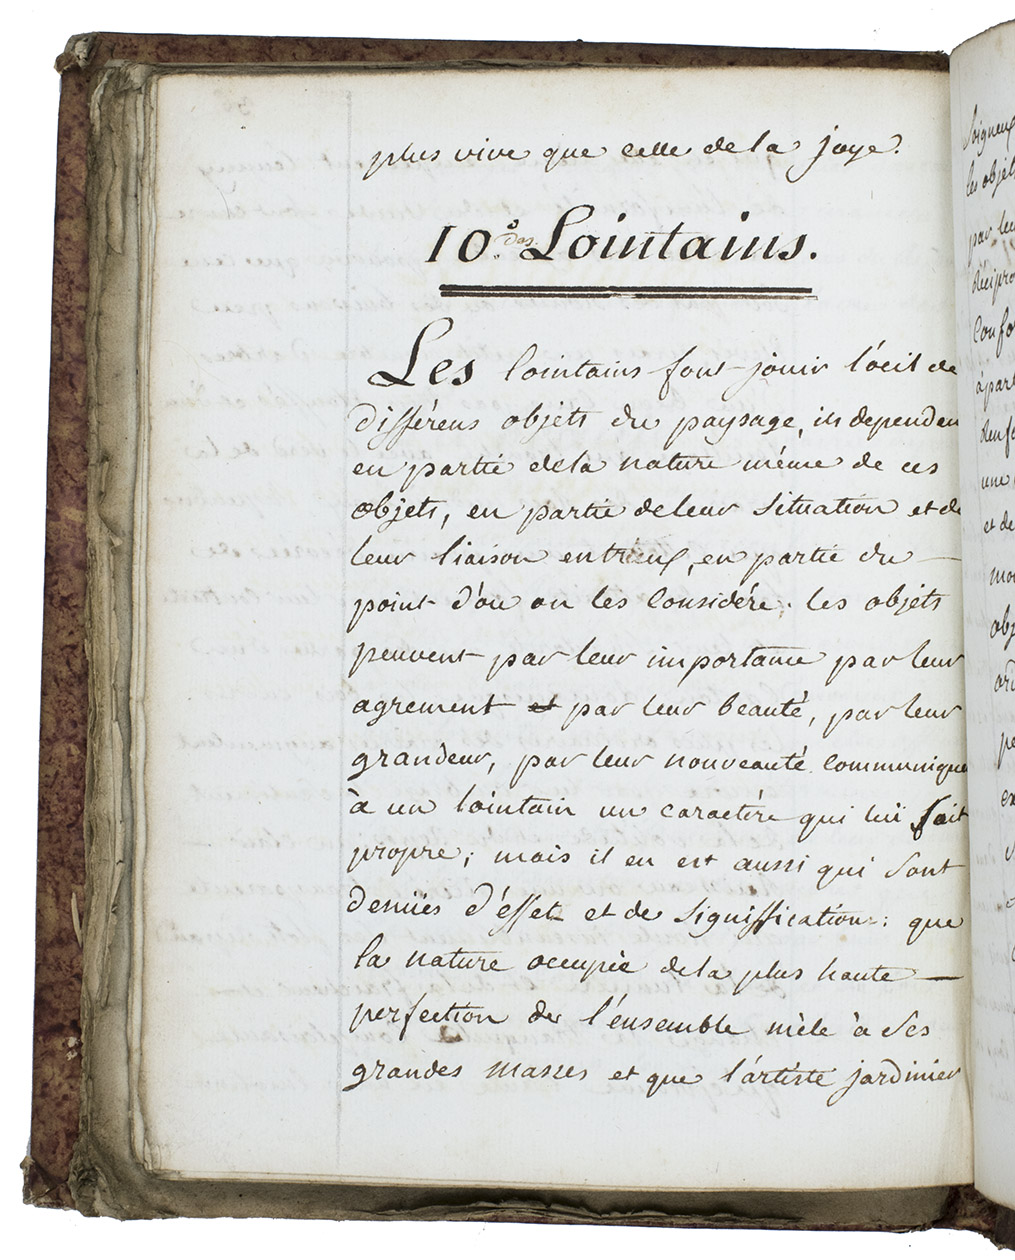 plus vive que celle de la joye.
10.° des Lointains.
Les lointains font jouir l'œil de
différens objets du paysage, independen
en partie de la nature même de ces
objets, en partie de leur situation et de
leur liaison entr'eux, en partie du —
point d'ou on les considére. les objets
peuvent par leur importance par leur
agrement et par leur beauté, par leur
grandeur, par leur nouveauté communique
à un lointain un caractère qui lui soit
propre; mais il en est aussi qui sont
denués d'éffet et de signiffication: que
la nature occupée de la plus haute —
perfection de l'énsemble mèle à ses
grandes masses et que l'artiste jardinier
Soigneux
les objets
par leu
recipro
Confor
à part
renfo
une
et de
mo
obj
ord
pe
ex